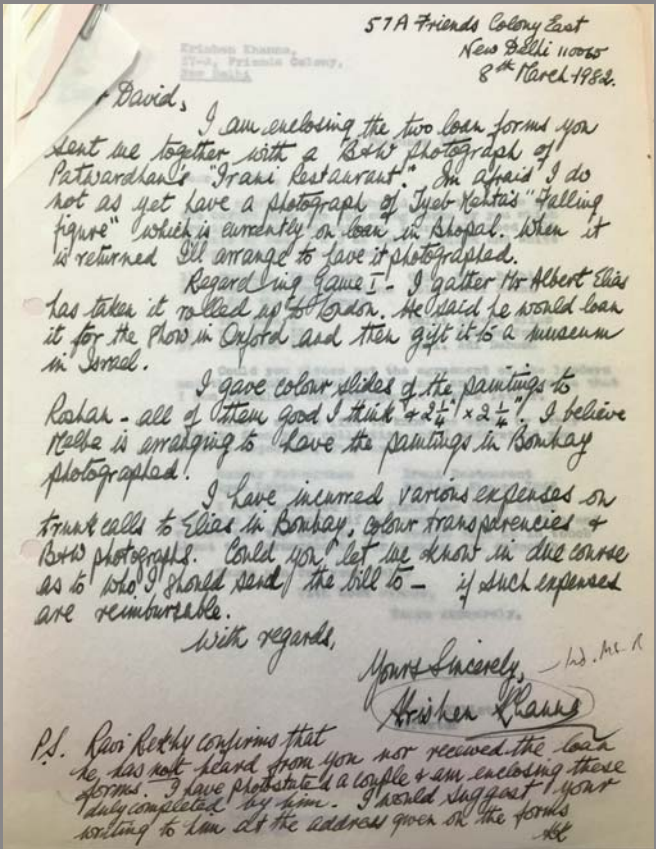 57A Friends Colony East
New Delhi 110065
8th March 1982.
Krishen Khanna,
57-A, Friends Colony,
New Delhi
David,
I am enclosing the two loan forms you
sent me together with a B&W photograph of
Patwardhan's "Irani Restaurant." Im afraid I do
not as yet have a photograph of Tyeb Mehta's "Falling
figure" which is currently on loan in Bhopal. When it
is returned I'll arrange to have it photographed.
Regarding Game I - I gather Mr Albert Elias
has taken it rolled up to London. He said he would loan
it for the show in Oxford and then gift it to a museum
in Israel.
I gave colour slides of the paintings to
Roshan - all of them good I think & 2¼" x 2¼". I believe
is arranging to have the paintings in Bombay
photographed.
I have incurred various expenses on
trunk calls to Elias in Bombay, colour transparencies &
B&W photographs. Could you let me know in due course
as to who I should send the bill to - if such expenses
are reimbursable.
With regards,
Yours Sincerely,
Krishen Khanna
P.S. Ravi confirms that
he has not heard from you nor received the loan
forms. I have photostated a couple & am enclosing these
duly completed by him. I would suggest your
writing to him at the address given on the forms
KK